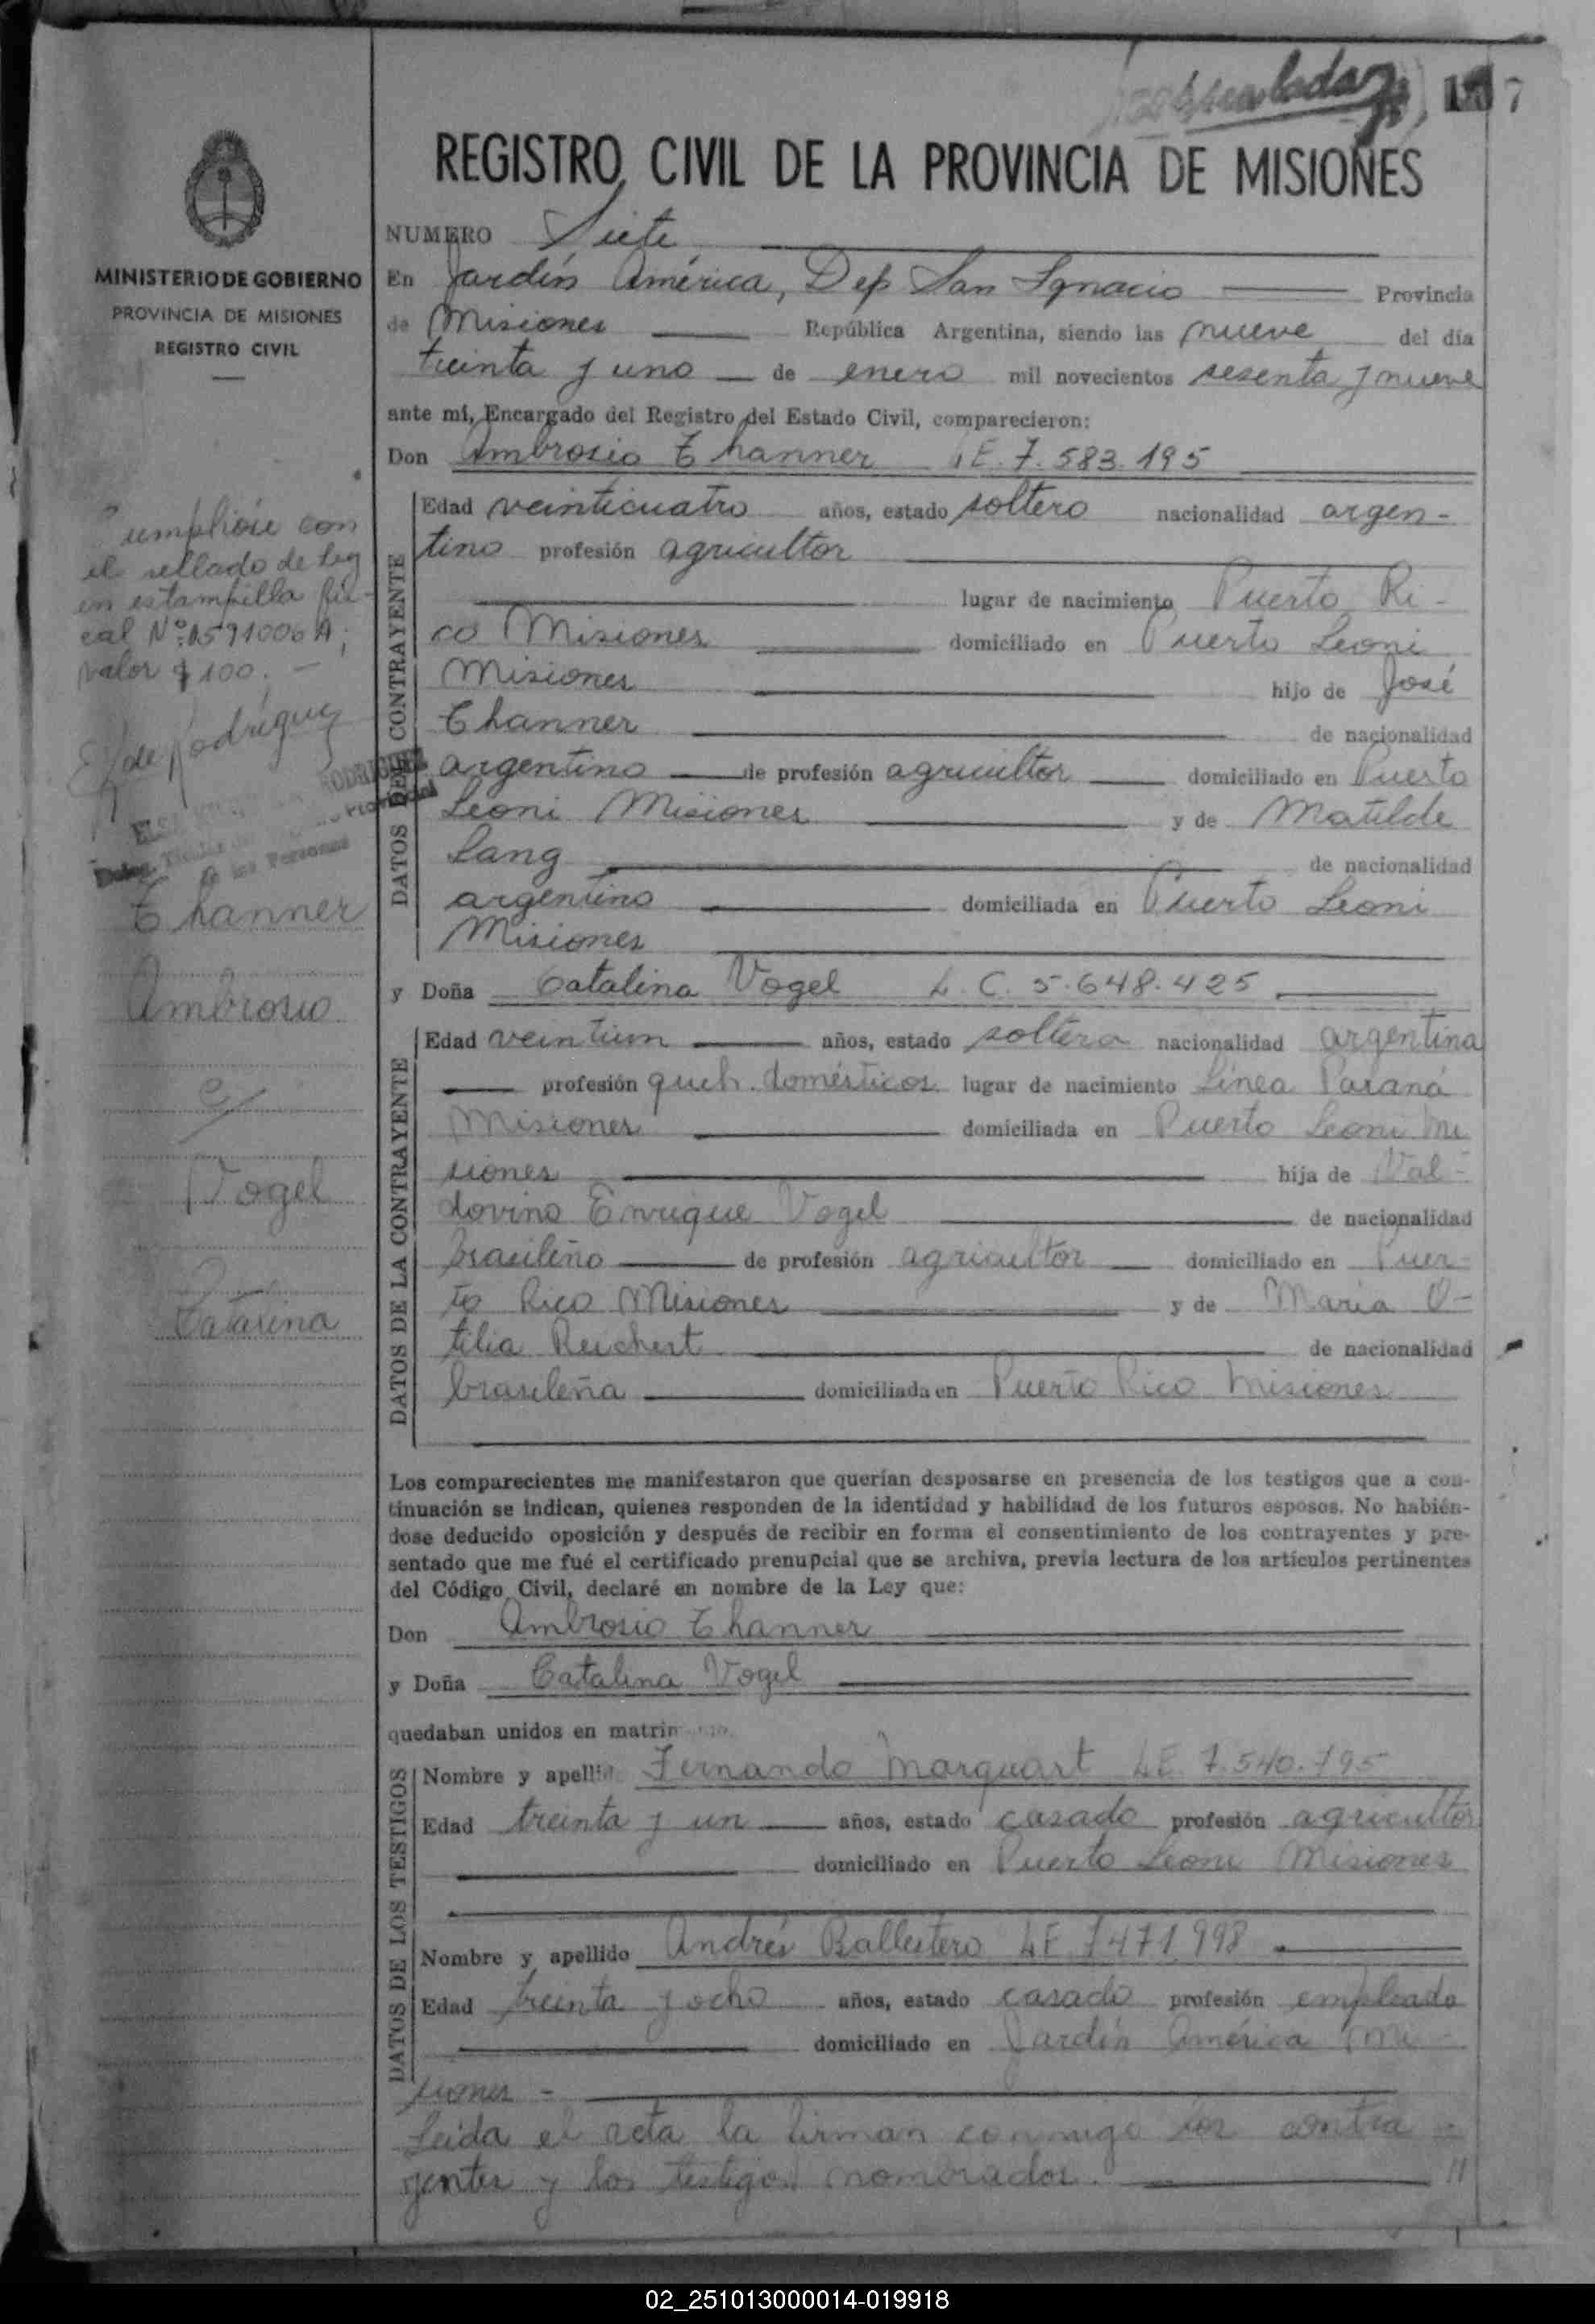 7
REGISTRO CIVIL DE LA PROVINCIA DE MISIONES
MINISTERIO DE GOBIERNO
PROVINCIA DE MISIONES
REGISTRO CIVIL
Cumplióse con
el sellado de Ley
en estampilla fis-
cal Nº: 1591006 A;
valor $ 100. —
E. de Rodríguez
Thanner
Ambrosio
c/
Vogel
Catalina
NUMERO Siete
En Jardín América, Dep San Ignacio Provincia
de Misiones República Argentina, siendo las nueve del día
treinta y uno de enero mil novecientos sesenta y nueve
ante mí, Encargado del Registro del Estado Civil, comparecieron:
Don Ambrosio Thanner LE. 7.583.195
DATOS DEL CONTRAYENTE
Edad veinticuatro años, estado soltero nacionalidad argen-
tino profesión agricultor
lugar de nacimiento Puerto Ri-
co Misiones domiciliado en Puerto Leoni
Misiones hijo de José
Thanner de nacionalidad
argentino de profesión agricultor domiciliado en Puerto
Leoni Misiones y de Matilde
Lang de nacionalidad
argentino domiciliada en Puerto Leoni
Misiones
y Doña Catalina Vogel L. C. 5.648.425
DATOS DE LA CONTRAYENTE
Edad veintiun años, estado soltera nacionalidad argentina
profesión queh. domésticos lugar de nacimiento Línea Paraná
Misiones domiciliada en Puerto Leoni Mi
siones hija de Val-
dovino Enrique Vogel de nacionalidad
brasileño de profesión agricultor domiciliado en Puer-
to Rico Misiones y de María O-
tilia Reichert de nacionalidad
brasileña domiciliada en Puerto Rico Misiones
Los comparecientes me manifestaron que querían desposarse en presencia de los testigos que a con-
tinuación se indican, quienes responden de la identidad y habilidad de los futuros esposos. No habién-
dose deducido oposición y después de recibir en forma el consentimiento de los contrayentes y pre-
sentado que me fué el certificado prenupcial que se archiva, previa lectura de los artículos pertinentes
del Código Civil, declaré en nombre de la Ley que:
Don Ambrosio Thanner
y Doña Catalina Vogel
quedaban unidos en matrim
DATOS DE LOS TESTIGOS
Nombre y apellido Fernando Marquart LE. 7.540.795
Edad treinta y un años, estado casado profesión agricultor
domiciliado en Puerto Leoni Misiones
Nombre y apellido Andrés Ballestero LE 7471.998
Edad treinta y ocho años, estado casado profesión empleado
domiciliado en Jardín América Mi-
siones -
Leida el acta la firman conmigo los contra
yentes y los testigos nombrados. //
02_251013000014-019918